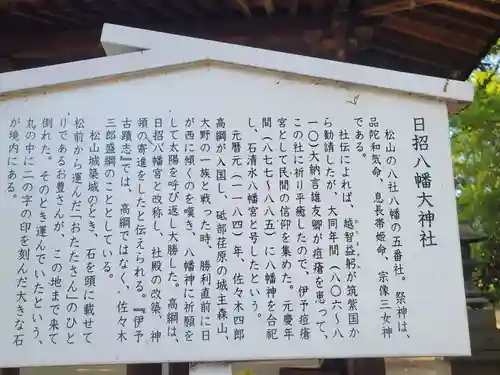 日招八幡大神社
松山の八社八幡の五番社。祭神は、
品陀和気命、息長帯姫命、宗像三女神
である。
社伝によれば、越智益躬が筑紫国か
ら勧請したが、大同年間(八〇六〜八
一〇)大納言雄友卿が痘瘡を患って、
この社に祈り平癒したので、伊予痘瘡
宮として民間の信仰を集めた。元慶年
間(八七七〜八八五)に八幡神を合祀
し、石清水八幡宮と号したという。
元暦元(一一八四)年、佐々木四郎
高綱が入国し、砥部荏原の城主森山、
大野の一族と戦った時、勝利直前に日
が西に傾くのを嘆き、八幡神に祈願を
して太陽を呼び返し大勝した。高綱は、
日招八幡宮と改称し、社殿の改築、神
領の寄進をしたと伝えられる。『伊予
古蹟志』では、高綱ではなく、佐々木
三郎盛綱のこととしている。
松山城築城のとき、石を頭に載せて
松前から運んだ「おたたさん」のひと
りであるお豊さんが、この地まで来て
倒れた。そのとき運んでいたという、
丸の中に二の字の印を刻んだ大きな石
が境内にある。